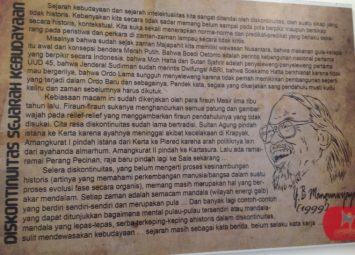 DISKONTINUITAS SEJARAH KEBUDAYAAN
Sejarah kebudayaan dan sejarah intelektualitas kita sangat ditandai oleh diskontinuitas, oleh suatu sikap yang
tidak historis. Kebanyakan kita secara tidak sadar memang belum sampai pada pola berpikir maupun bersikap
secara historis, kontekstual. Kita suka mencabut orang dan peristiwa
pada peristiwa dan perkara di zaman dahulu dengan norma-norma zaman kita.
Misalnya bahwa sudah sejak zaman Majapahit kita memiliki wawasan Nusantara, bahwa makanan gula-kelapa
itu awal dari konsepsi bendera Merah Putih. Bahwa Boedi Oetomo adalah perintis kebangunan nasional pertama
yang berpikir secara Indonesia, bahwa Moh Hatta dan Sutan Sjahrir adalah penyeleweng-penyeleweng
UUD 45, bahwa Jenderal Sudirman sudah merintis Dwifungsi ABRI, bahwa Soekarno Hatta berkhianat karena tidak
mau bergerilya, bahwa Orde Lama sungguh menyeleweng karena tidak pernah memikirkan pembangunan seperti
yang terjadi dalam Orde Baru dan sebagainya. Pendek kata, segala yang dikerjakan sang pendahulu musti kudu
keliru dan zaman sebelumnya harus dikutuk.
Kebiasaan macam ini sudah dikerjakan oleh para firaun Mesir lima ribu
tahun lalu. Firaun-firaun sukanya menghancurkan semua patung dan gambar
wajah pada relief-relief yang menggambarkan firaun pendahulunya yang tidak
disukai. Cita rasa diskontinuitas sudah lama bertradisi. Sultan Agung pindah
istana ke Kerta karena ayahnya meninggal akibat kecelakaan di Krapyak.
Amangkurat I pindah istana dari Kerta ke Plered karena arah politiknya lain
dari ayahnya. Amangkurat II pindah ke Kartasura. Lalu ada rame-rame
ramai Perang Pecinan, raja baru pindah lagi ke Sala sekarang ...
Selera diskontinuitas, yang belum mengerti proses kesinambungan
historis (artinya yang memahami perkembangan manusia/bangsa dalam suatu
proses evolusi fase secara organis), memang masih merupakan hal yang ber-
akar mendalam. Setiap zaman adalah semacam mandala (wilayah energi gaib)
yang berdiri sendiri-sendiri dan merupakan pula ... Dan banyak lagi contoh-conton
yang dapat ditunjukkan bagaimana mental pulau-pulau tersendiri atau mandala-
mandala yang lepas-lepas, serba terkeping-keping ahistoris dalam diskontinuitas,
sulit mendewasakan kebudayaan ... sejarah masih sebagai kata benda, belum selaku kata kerja ...
Y.B Mangunwijaya
(1999)